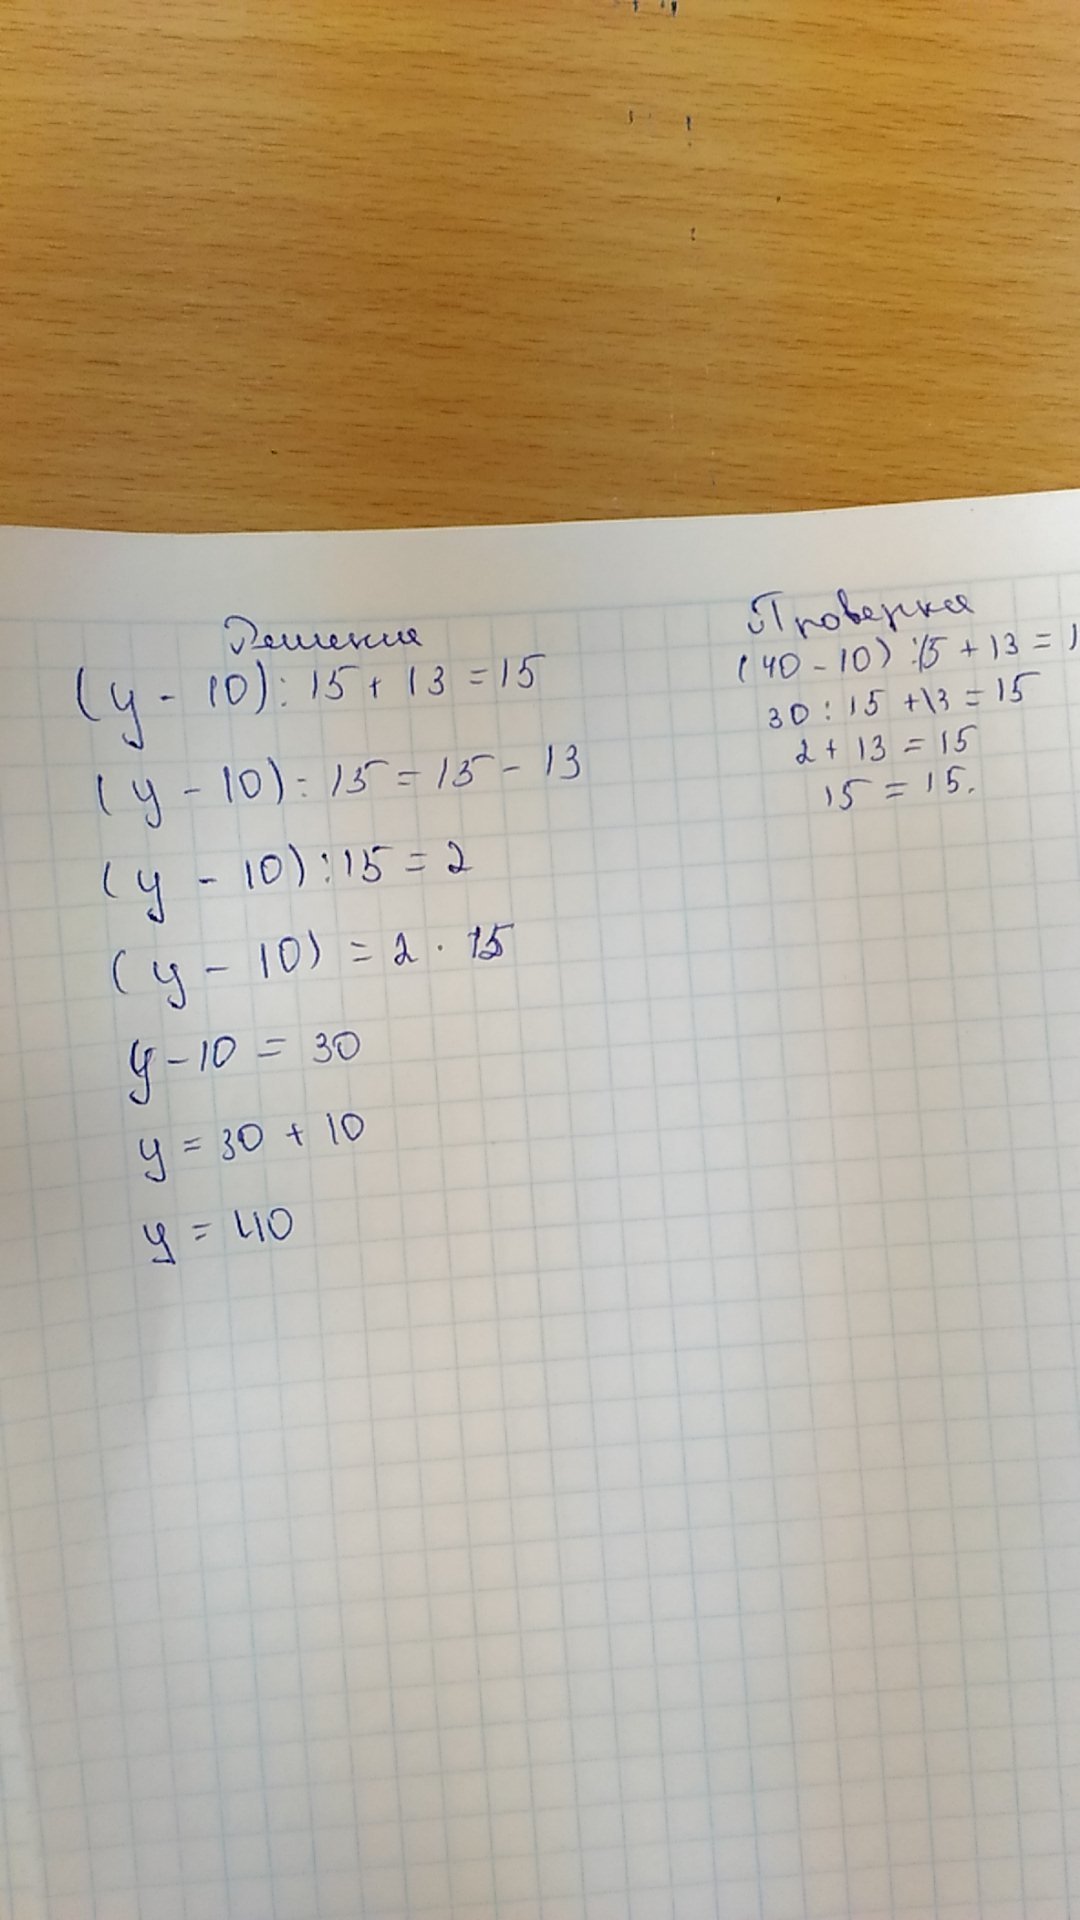 Решение
(y - 10) : 15 + 13 = 15
(y - 10) : 15 = 15 - 13
(y - 10) : 15 = 2
(y - 10) = 2 · 15
y - 10 = 30
y = 30 + 10
y = 40
Проверка
(40 - 10) : 15 + 13 = 1
30 : 15 + 13 = 15
2 + 13 = 15
15 = 15.